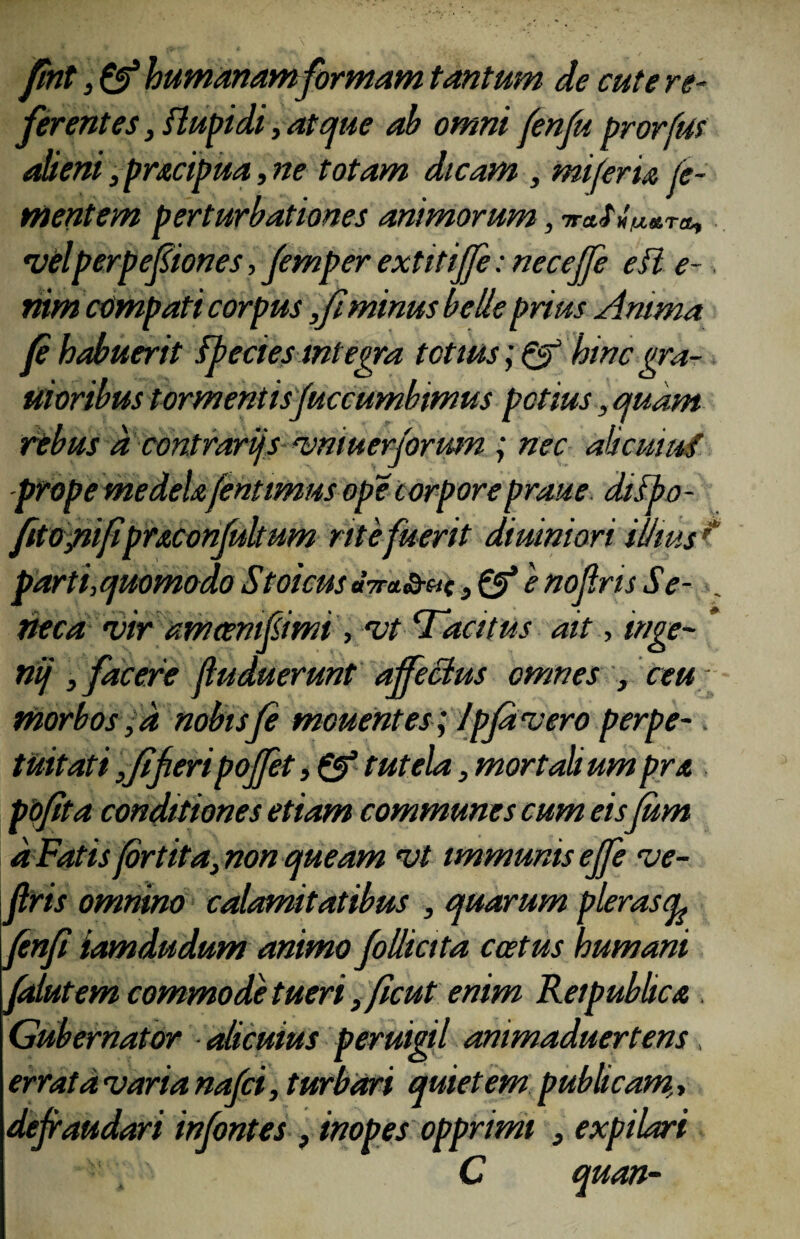 ſint, & humanam formam tantum de cute re-
ferentes, ſtupidi, atque ab omni ſenſu prorſus
alieni, præcipua, ne totam dicam, miſeriæ ſe-
mentem perturbationes animorum, παθήματα,
vel perpeſsiones, ſemper extitiſſe: neceſſe eſt e-
nim compati corpus, ſi minus belle prius Anima
ſe habuerit ſpecies integra totius; & hinc gra-
uioribus tormentis ſuccumbimus potius, quàm
rebus à contrarijs vniuerſorum; nec alicuiuſ
prope medelæ ſentimus opē corpore praue diſpo-
ſito, niſi præconſultum ritè fuerit diuiniori illius
parti, quomodo Stoicus ἀπαθεῖς, & è noſtris Se-
neca vir amœniſsimi, vt Tacitus ait, inge-
nij, facere ſtuduerunt affectus omnes, ceu
morbos, à nobis ſe mouentes; Ipſa vero perpe-
tuitati, ſi fieri poſſet, & tutela, mortalium præ
poſita conditiones etiam communes cum eis ſum
à Fatis ſortita, non queam vt immunis eſſe ve-
ſtris omnino calamitatibus, quarum plerasq́;
ſenſi iamdudum animo ſollicita cœtus humani
ſalutem commodè tueri, ſicut enim Reipublicæ
Gubernator alicuius peruigil animaduertens
errata varia naſci, turbari quietem publicam,
defraudari inſontes, inopes opprimi, expilari
C quan-